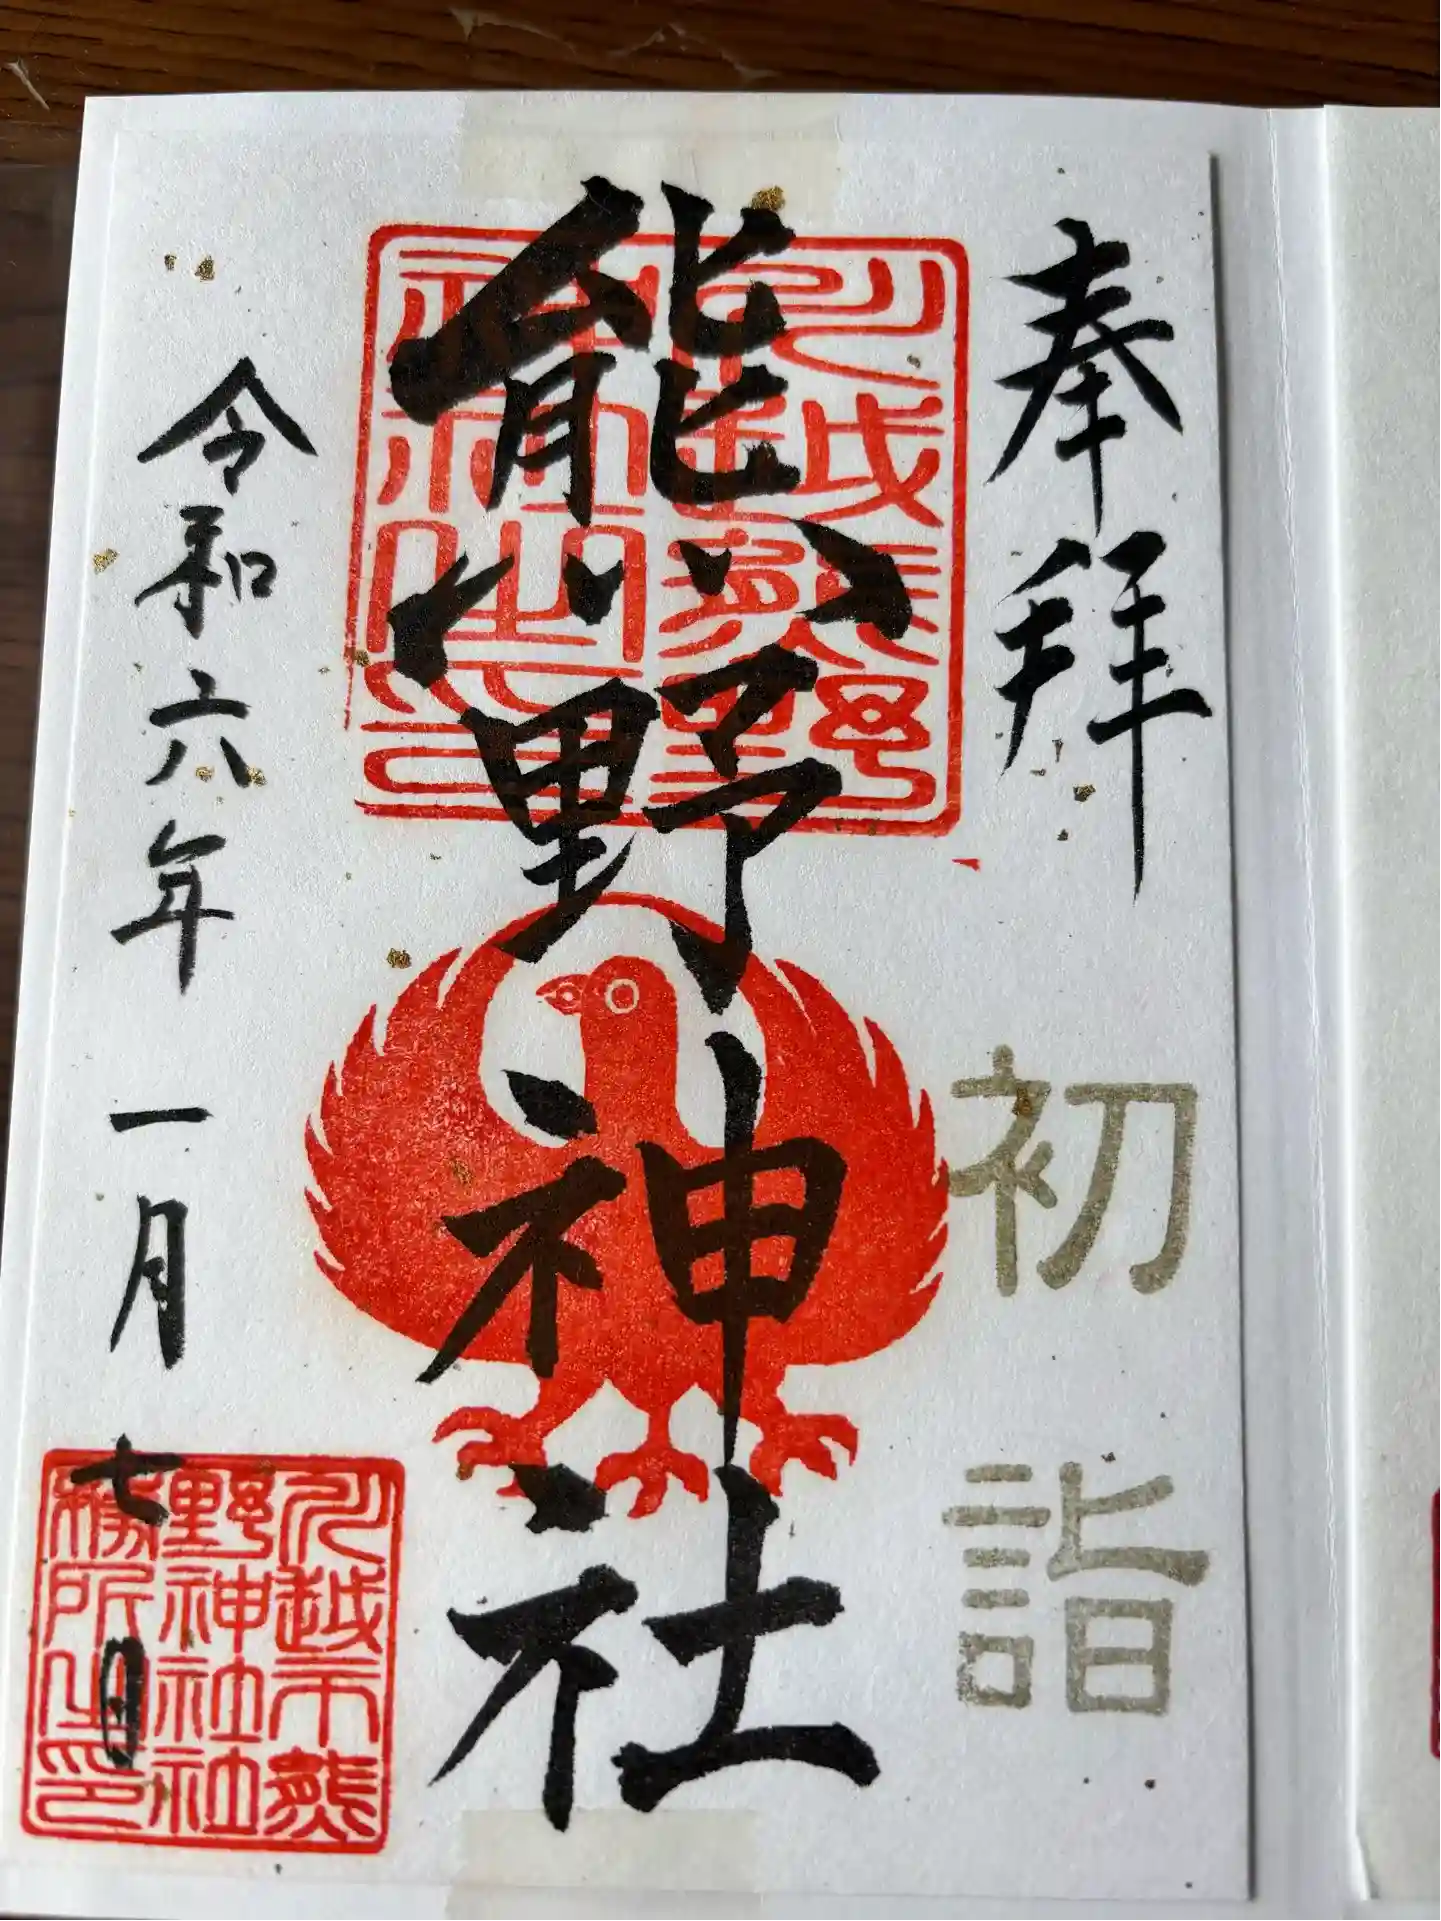 奉拝
初詣
熊野神社
川越熊野
神社之印
令和六年一月七日
川越市熊
野神社社
務所之印